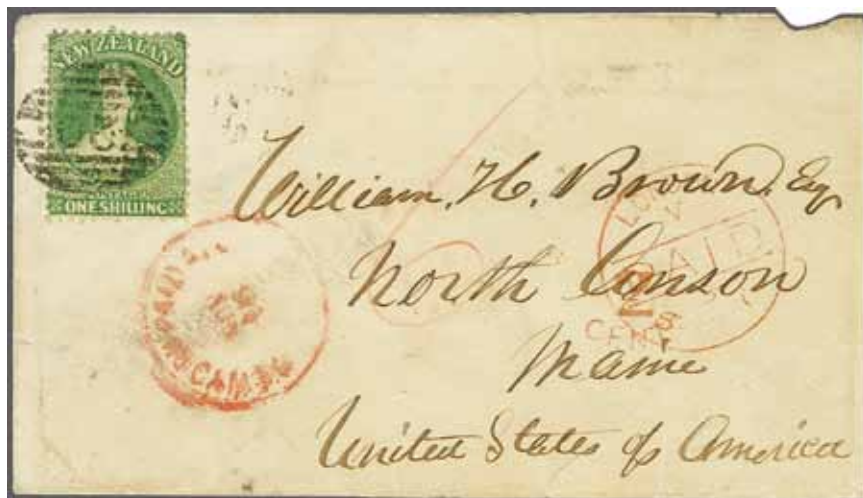 NEW ZEALAND
POSTAGE
ONE SHILLING
William. H. Brown. Esqr
North Anson
Maine
United States of America
PAID
2
CENTS